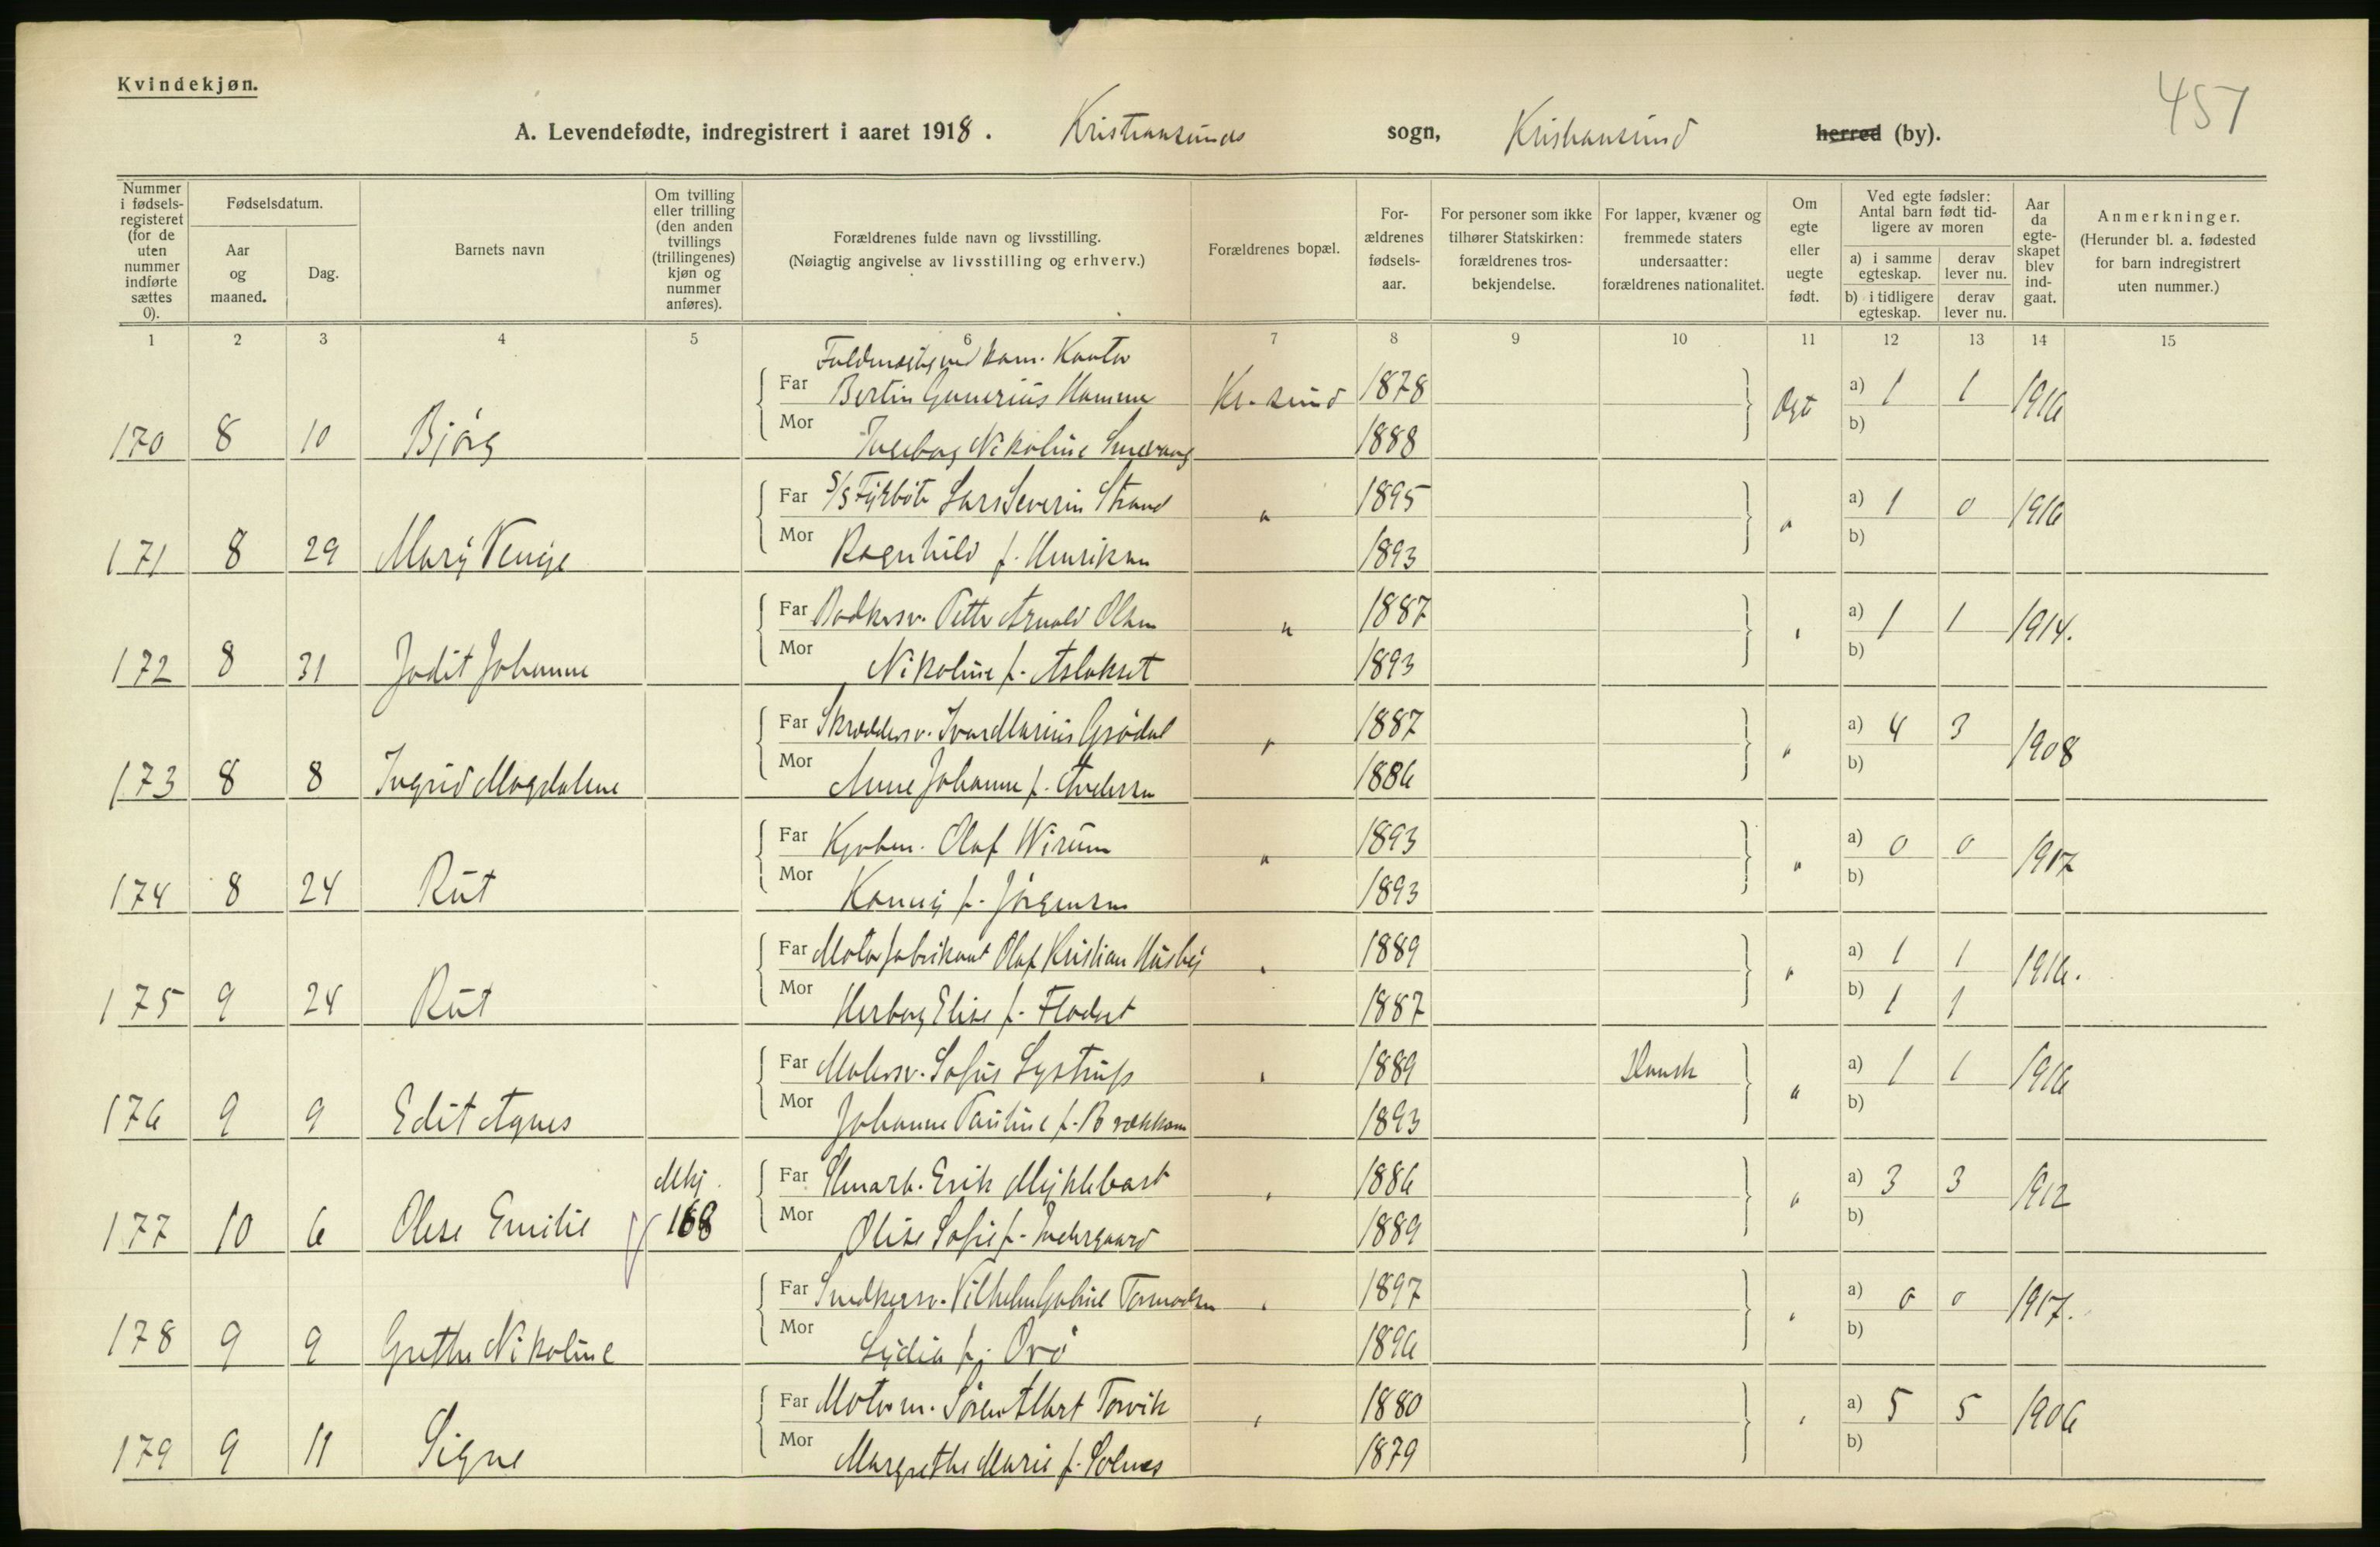 Kvindekjøn.
457
A. Levendefødte, indregistrert i aaret 1918. Kristiansunds sogn, Kristiansund herred (by).
Nummer i fødselsregisteret (for de uten nummer indførte sættes 0).
Fødselsdatum.
Aar og maaned.
Dag.
Barnets navn
Om tvilling eller trilling (den anden tvillings (trillingenes) kjøn og nummer anføres).
Forældrenes fulde navn og livsstilling.
(Nøiagtig angivelse av livsstilling og erhverv.)
Forældrenes bopæl.
Forældrenes fødselsaar.
For personer som ikke tilhører Statskirken: forældrenes trosbekjendelse.
For lapper, kvæner og fremmede staters undersaatter: forældrenes nationalitet.
Om egte eller uegte født.
Ved egte fødsler: Antal barn født tidligere av moren
a) i samme egteskap. derav lever nu.
b) i tidligere egteskap. derav lever nu.
Aar da egteskapet blev indgaat.
Anmerkninger.
(Herunder bl. a. fødested for barn indregistrert uten nummer.)
1 2 3 4 5 6 7 8 9 10 11 12 13 14 15
Kontor
Far Bertin Gunerius Hamme Kr.sund 1878 Egt a) 1 1 1916
170 8 10 Bjørg Mor Ingeborg Nikoline 1888 b)
Far S/S Fyrbøter Lars Severin Strand " 1895 " a) 1 0 1916
171 8 29 Mary Mor Ragnhild f. Henriksen 1893 b)
Far Bødkersv. Petter Arnold Olsen " 1887 " a) 1 1 1914.
172 8 31 Jodit Johanne Mor Nikoline f. Aslakset 1893 b)
Far Skræddersv. Ivar Marius Grødal " 1887 " a) 4 3 1908
173 8 8 Ingrid Magdalene Mor Anne Johanne f. Andersen 1886 b)
Far Kjøbm. Olaf Wirum " 1893 " a) 0 0 1917
174 8 24 Rut Mor f. Jørgensen 1893 b)
Far Motorfabrikant Olaf Kristian Husby " 1889 " a) 1 1 1916.
175 9 24 Rut Mor Herborg Elise f. Flodset 1887 b) 1 1
Far Malersv. Sofus Systrup " 1889 Dansk " a) 1 1 1916
176 9 9 Edit Agnes Mor Johanne Pauline f. Brækkan 1893 b)
Mkj. Far Erik Myklebust " 1886 " a) 3 3 1912
177 10 6 Olise Emilie 168 Mor Olise Sofie f. Indergaard 1889 b)
Far Snedkersv. Vilhelm Tormodsen " 1897 " a) 0 0 1917.
178 9 9 Grethe Nikoline Mor Lydia f. Orø 1896 b)
Far Motorm. Søren Albert Torvik " 1880 " a) 5 5 1906
179 9 11 Signe Mor Margrethe Marie f. Solnes 1879 b)